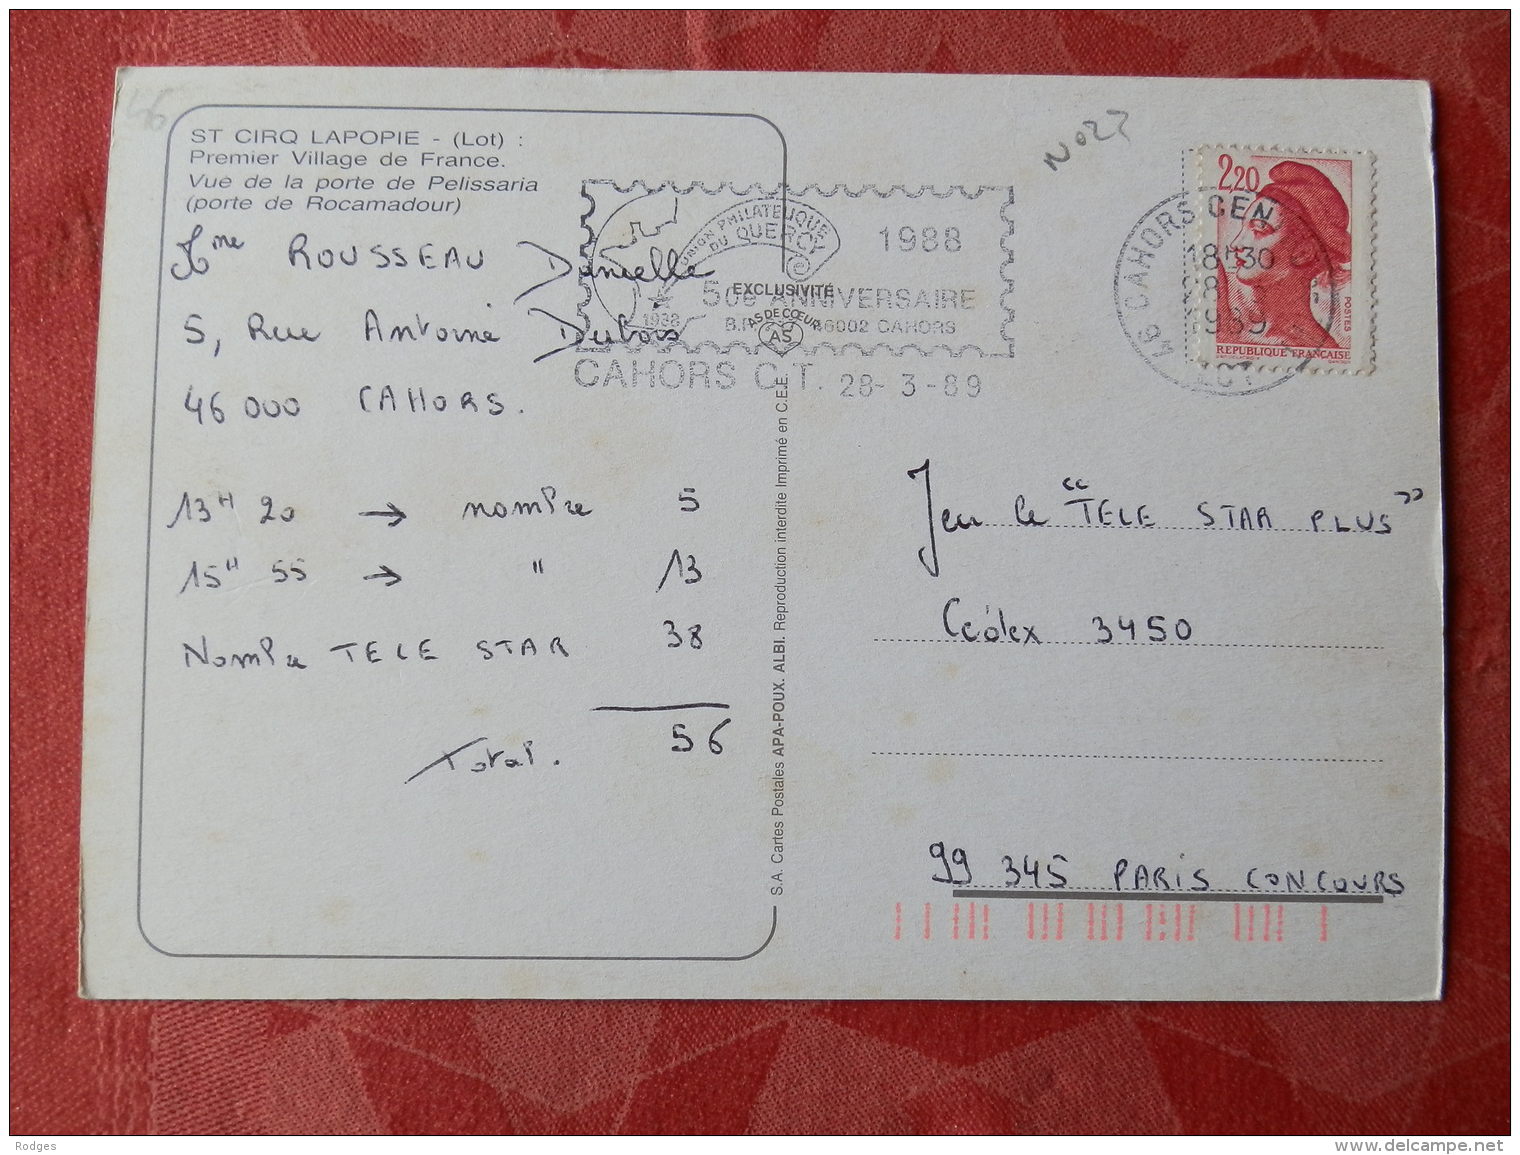 46
ST CIRQ LAPOPIE - (Lot) :
Premier Village de France.
Vue de la porte de Pelissaria
(porte de Rocamadour)
Mme ROUSSEAU Danielle
5, Rue Antoine Dubois
46 000 CAHORS.
13H 20 → nombre 5
15H 55 → " 13
Nombre TELE STAR 38
56
Total.
UNION PHILATELIQUE
DU QUERCY
1988
50e ANNIVERSAIRE
1938
B.P. 46002 CAHORS
CAHORS C.T. 28-3-89
EXCLUSIVITÉ
AS DE CŒUR
AS
S.A. Cartes Postales APA-POUX. ALBI. Reproduction interdite Imprimé en C.E.E.
N022
2,20
POSTES
REPUBLIQUE FRANCAISE
46 CAHORS CEN
18H30
28
1989
LOT
Jeu le "TELE STAR PLUS"
Cédex 3450
99 345 PARIS CONCOURS
Rodges
delcampe.net